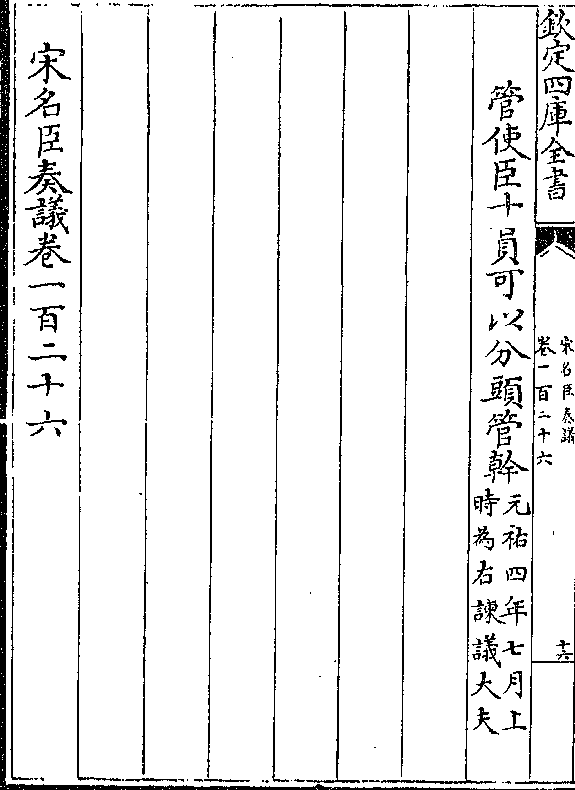 欽定四庫全書
宋名臣奏議
卷一百二十六
十六
管使臣十員可以分頭管幹元祐四年七月上
時為右諫議大夫
宋名臣奏議卷一百二十六